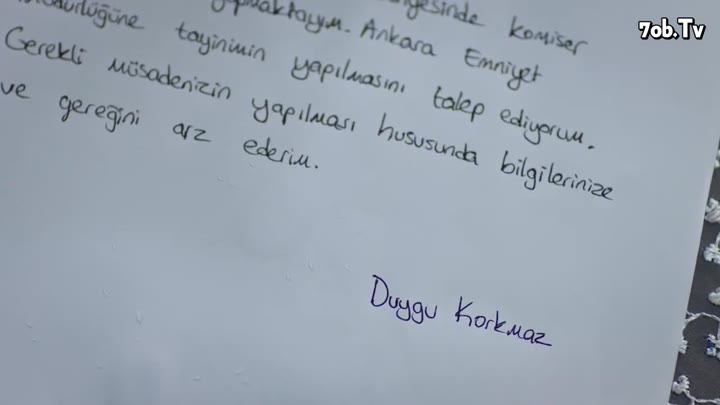 7ob.Tv
yapmaktayım. Ankara Emniyet
Müdürlüğüne tayinimin yapılmasını talep ediyorum.
Gerekli müsadenizin yapılması hususunda bilgilerinize
ve gereğini arz ederim.
Duygu Korkmaz